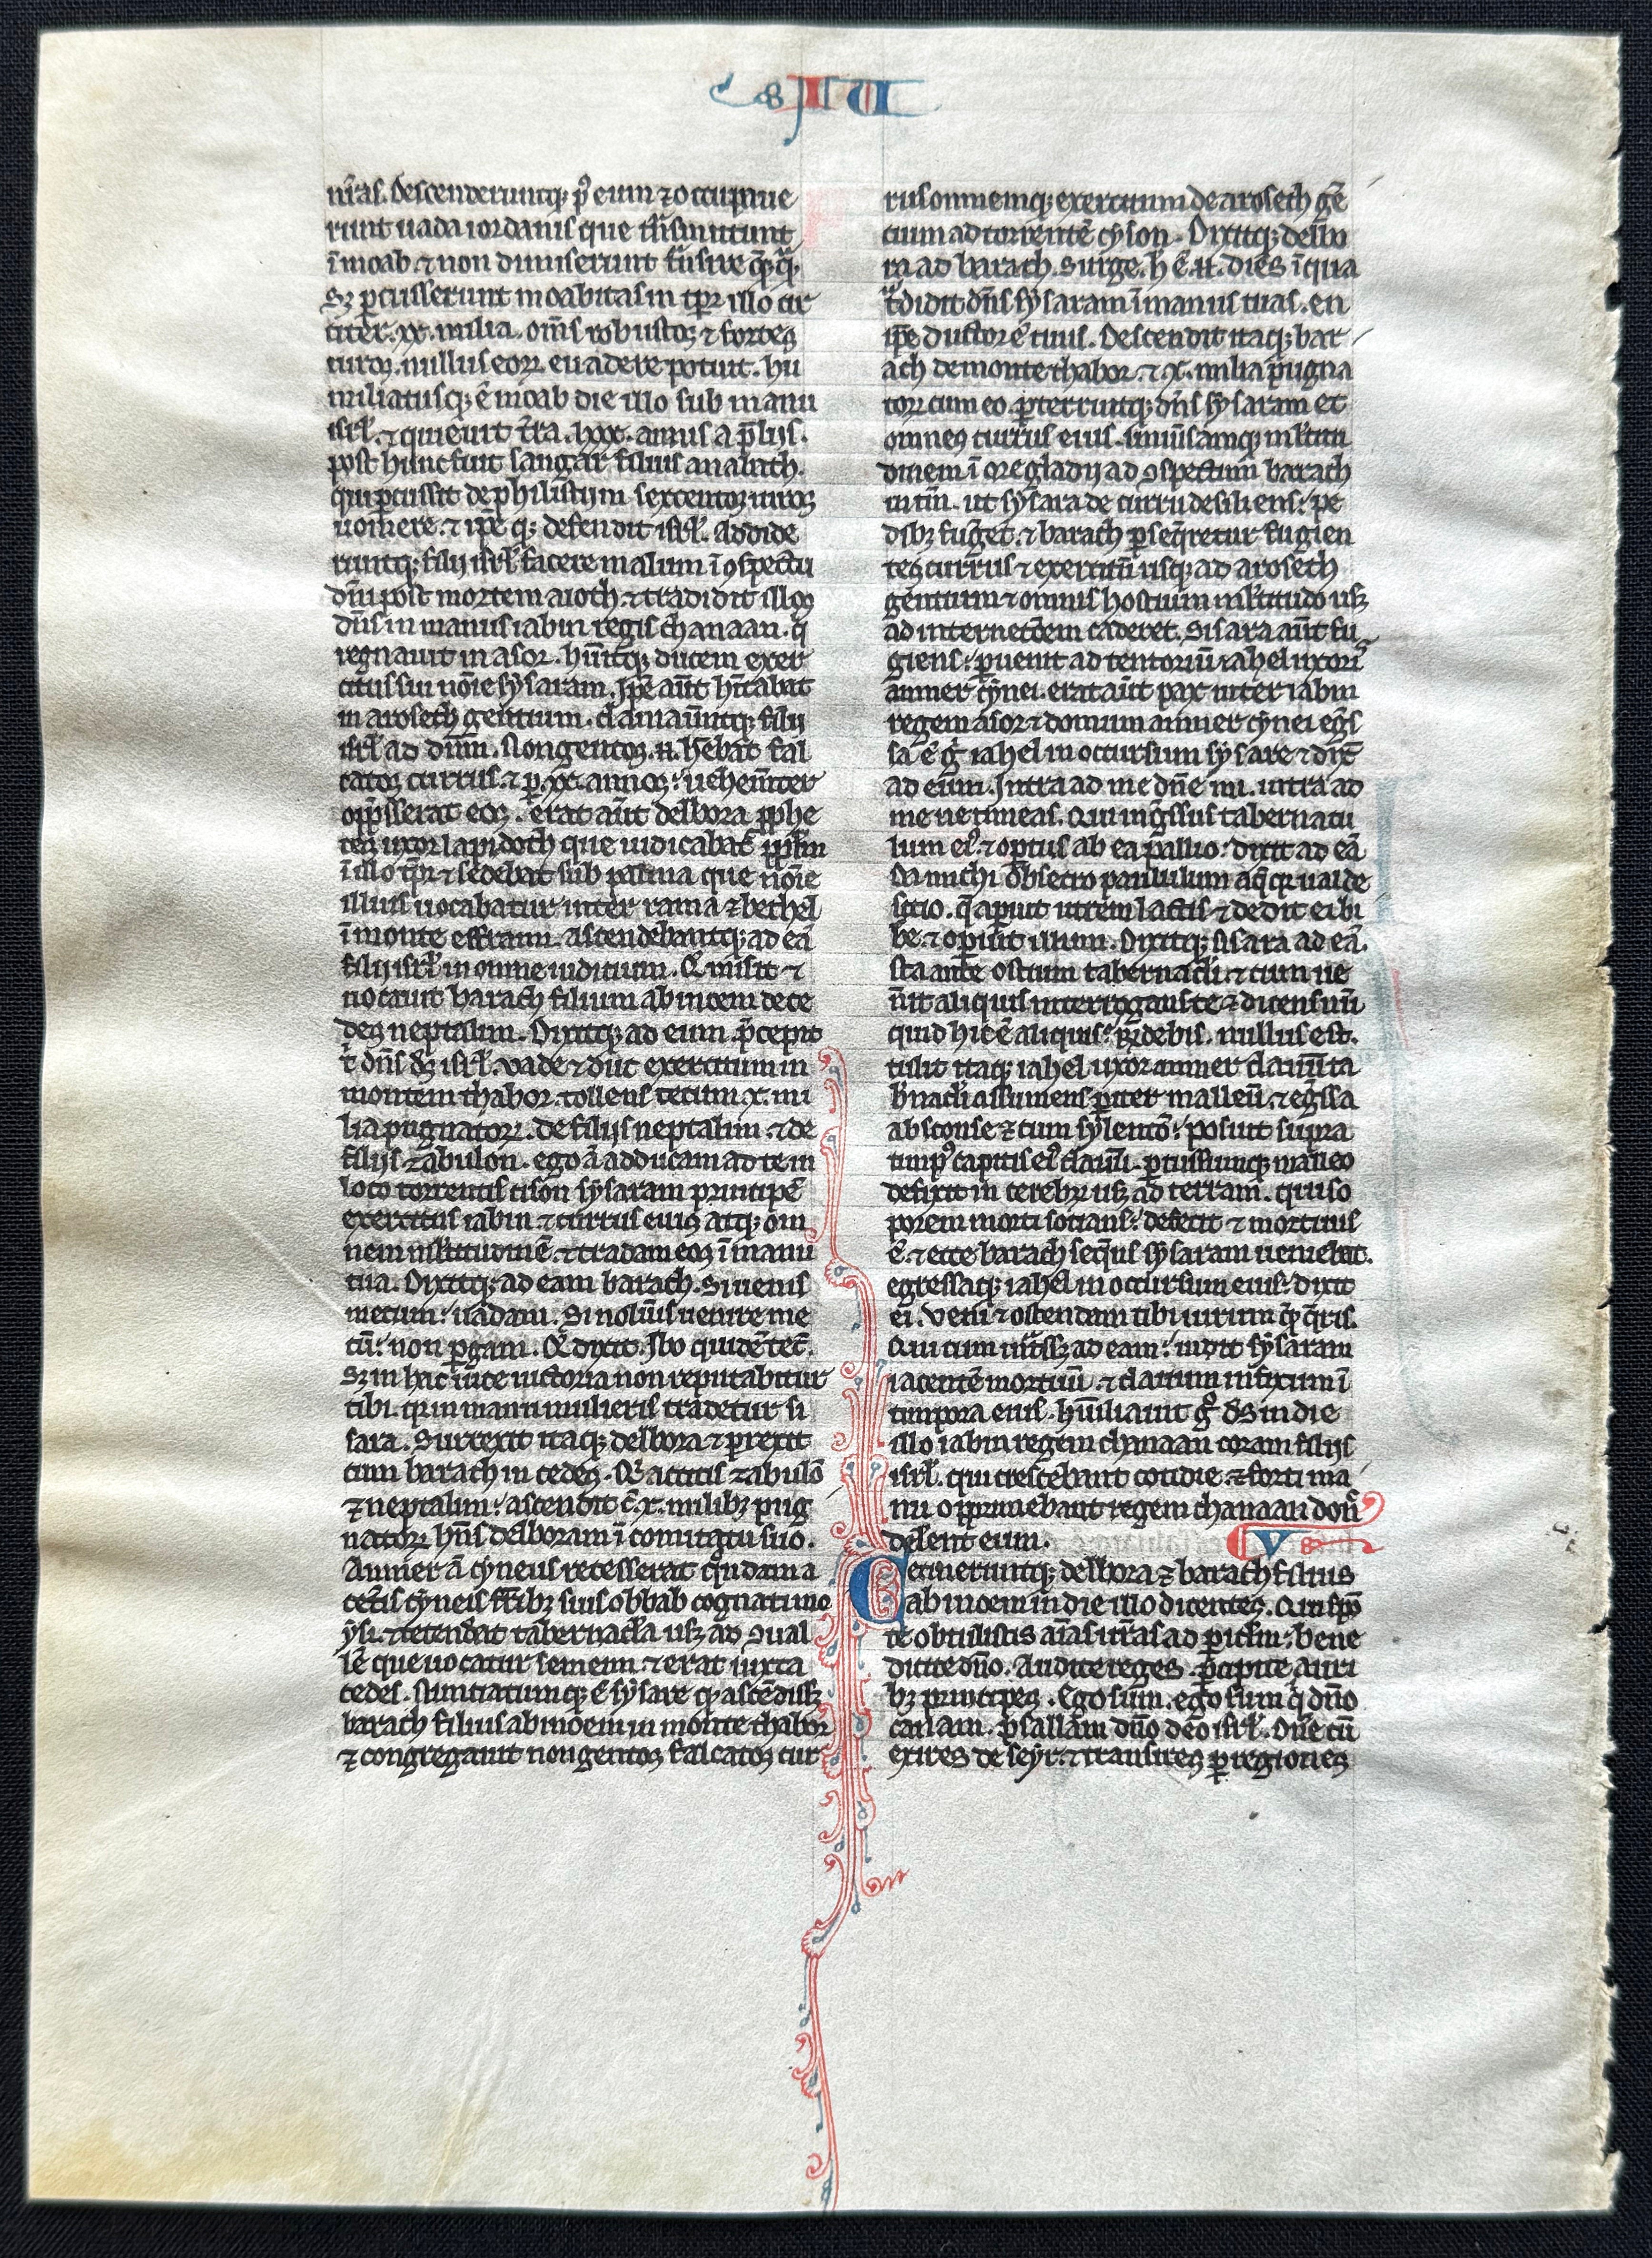 IU
nr̄as. Descenderuntq; p⁹ eum ⁊ occupaue
runt uada iordanis que tn̄smittunt
ī moab. ⁊ non dimiserunt tn̄sire q̄q̄.
Sꝫ ꝑcusserunt moabitas in tp̄r illo cir
citer .xx. milia. om̄s robustos ⁊ fortes
uiros. nullus eoꝝ. euadere potuit. hu
miliatusq; ē moab die illo sub manu
isrl̄. ⁊ quieuit t̄ra .lxxx. annis a p̄lijs.
post hunc fuit sangar filius anabath.
qui ꝑcussit de philistijm sexcentos uiros
uomere. ⁊ ip̄e q; defendit isrl̄. Addide
runtq; filij isrl̄ facere malum ī ꝯspectu
dn̄i post mortem aioth. ⁊ tradidit illos
dn̄s in manus iabin regis chanaan. q̇
regnauit in asor. hūitq; ducem exer
citus sui nōie sysaram. Ip̄e aūt hītabat
in aroseth gentium. clamauntq; filij
isrl̄ ad dn̄m. Nongentos .n. hēbat fal
catos currus. ⁊ ꝑ .xx. annos: uehemt̄er
opp̄sserat eos. erat aūt delbora ꝓphe
tes uxor lapidoth que iudicabat pplm̄
ī illo tp̄r ⁊ sedebat sub palma que nōie
illius uocabatur inter rama ⁊ bethel
ī monte effraim. ascendebantq; ad eā
filij isrl̄ in omne iudicium. Q̄ misit ⁊
uocauit barach filium abinoem de ce
des neptalim. Dixitq; ad eum. p̄cepit
t̄ dn̄s ds̄ isrl̄. vade ⁊ duc exercitum in
montem thabor. tollens tecum .x. mi
lia pugnatoꝝ. de filijs neptalim. ⁊ de
filijs zabulon. ego ā adducam ad te in
loco torrentis cison sysaram principē
exercitus iabin ⁊ currus eius atq; om
nem ml̄titudinē. ⁊ tradam eos ī manu
tua. Dixitq; ad eam barach. Si uenis
mecum: uadam. Si nolūis uenire me
cū: non ꝑgam. Q̄ dixit. Ibo quidē tec̄.
Sꝫ in hac uice uictoria non reputabitur
tibi. qr in manu mulieris tradetur si
sara. Surrexit itaq; delbora ⁊ ꝑrexit
cum barach in cedes. Q̄ accitis zabulō
⁊ neptalim: ascendit c̄ .x. milibꝫ pug
natoꝝ hn̄s delboram ī comitatu suo.
Anner ā cyneus recesserat qn̄dam a
cet̄is cyneis fr̄ibꝫ suis obbab cognatimo
ysi. ⁊ tetendat tabernacl̄a usꝫ ad ꝯual
lē que uocatur sēmem. ⁊ erat iuxta
cedes. Nuntiatumq; ē sysare qꝫ ascēdissꝫ
barach filius abinoem in monte thabor
⁊ congregauit nongentos falcatos cur
rus omnemq; exercitum de aroseth gē
tium ad torrentē cyson. Dixitq; delbo
ra ad barach. Surge. h̄ ē .n. dies ī qua
tͣdidit dn̄s sysaram ī manus tuas. en
ip̄e ductor ē tuus. Descendit itaq; bar
ach de monte thabor. ⁊ .x. milia pugna
toꝝ cum eo. ꝑterruitq; dn̄s sysaram et
omnes currus eius. uniūsamq; ml̄titu
dinem ī ore gladij ad ꝯspectum barach
intm̄. ut sysara de curru desiliens: pe
dibꝫ fuḡet. ⁊ barach ꝑseq̄retur fugien
tes currus ⁊ exercitū usq; ad aroseth
gentium ⁊ omnis hostium ml̄titudo usꝫ
ad internetōem caderet. Sisara aūt fu
giens: ꝑuenit ad tentoriū iahel uxoris
anner cynei. erat aūt pax inter iabin
regem asor ⁊ domum anner cynei egs̄
sa ē g̊ iahel in occursum sysare ⁊ dix̄
ad eum. Intra ad me dn̄e mi. intra ad
me ne timeas. Qui ings̄sus tabernacu
lum ei⁹. ⁊ optus ab ea pallio: dixit ad eā
Da michi obsecro paululum aq̄ qꝛ ualde
sitio. q̄ aꝑuit utrem lactis ⁊ dedit ei bi
be. ⁊ oꝑuit illum. Dixitq; sisara ad eā.
Sta ante ostium tabernacl̄i. ⁊ cum ue
n̄it aliquis interrogans te ⁊ dicens nū
quid hic ē aliquis: rn̄debis. nullus est.
tulit itaq; iahel uxor anner clauū ta
b̄nacl̄i assumens ꝑiter malleū. ⁊ egs̄sa
absconse ⁊ cum sylentō: posuit supra
timp⁹ capitis ei⁹ clauū. ꝑcussumq; malleo
defixit in cerebꝝ usꝫ ad terram. qui so
porem morti socians: defecit ⁊ mortuus
ē. ⁊ ecce barach seqn̄s sysaram ueniebat.
egressaq; iahel in occursum eius: dixit
ei. Veni ⁊ ostendam tibi uirum qꝫ q̄ris.
Qui cum intͣssꝫ ad eam: uidit sysaram
iacentē mortuū. ⁊ clauum infixum ī
timpora eius. hūiliauit g̊ ds̄ in die
illo iabin regem chanaan coram filijs
isrl̄. qui crescebant cotidie. ⁊ forti ma
nu opprimebant regem chanaan don̄
delent eum. V
Cecineruntq; delbora ⁊ barach filius
abinoem in die illo dicentes. Qui spō
te obtulistis aīas ur̄as ad ꝑiclm̄: bene
dicite dn̄o. Audite reges. ꝑcipite auri
bꝫ principes. Ego sum. ego sum q̇ dn̄o
canam. psallam dn̄o deo isrl̄. Dn̄e cū
exires de seyr. ⁊ transires ꝑ regiones